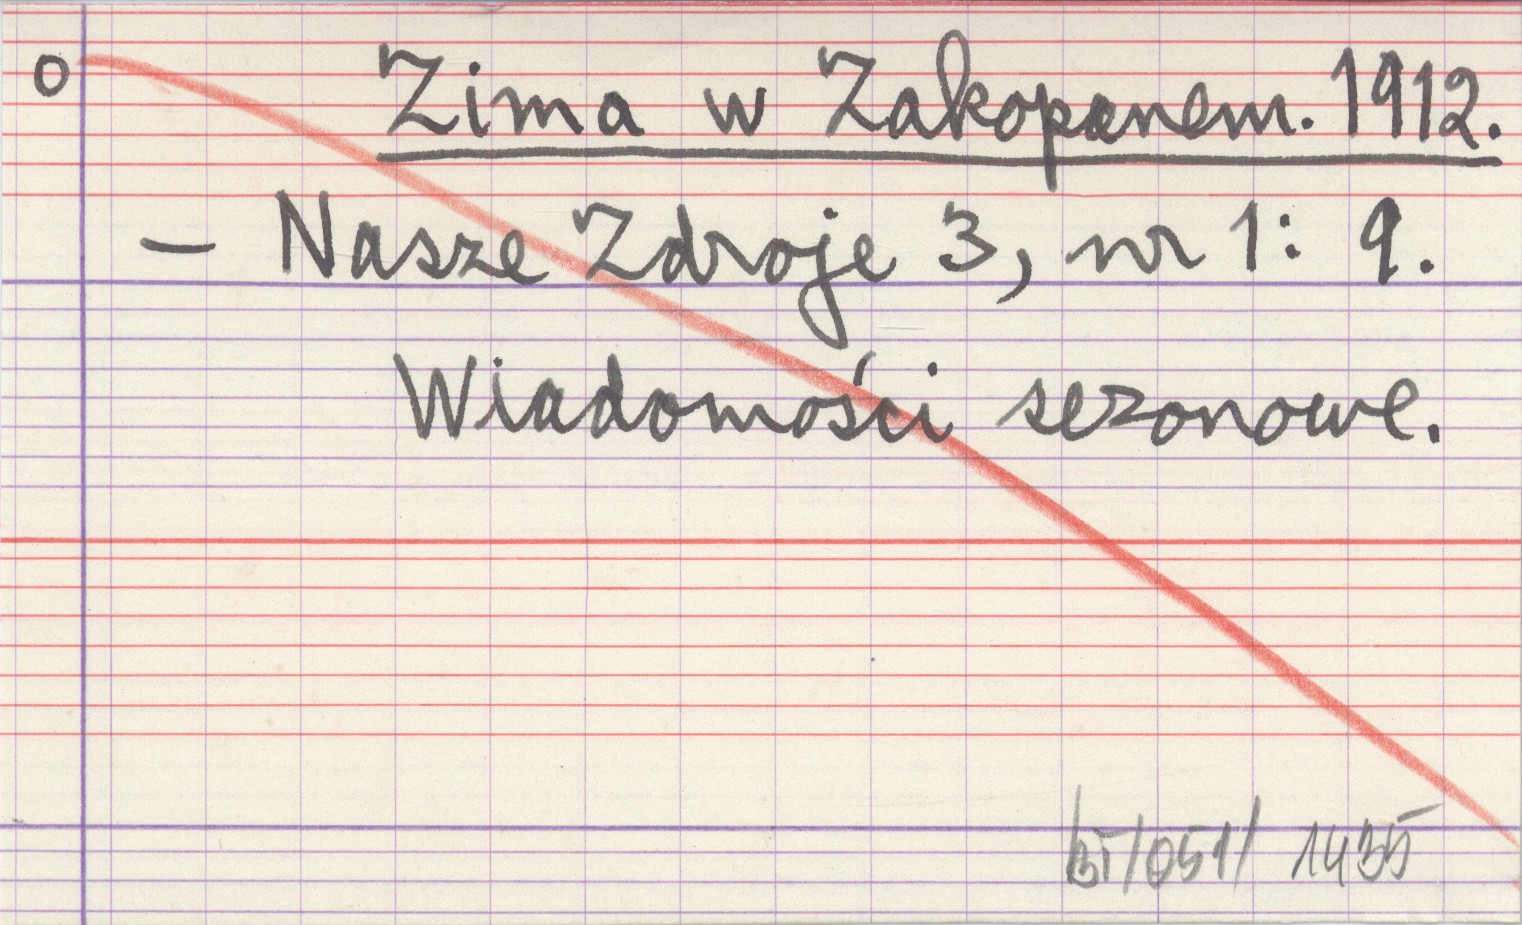 o Zima w Zakopanem. 1912.
– Nasze Zdroje 3, nr 1: 9.
Wiadomości sezonowe.
BT/051/ 1435